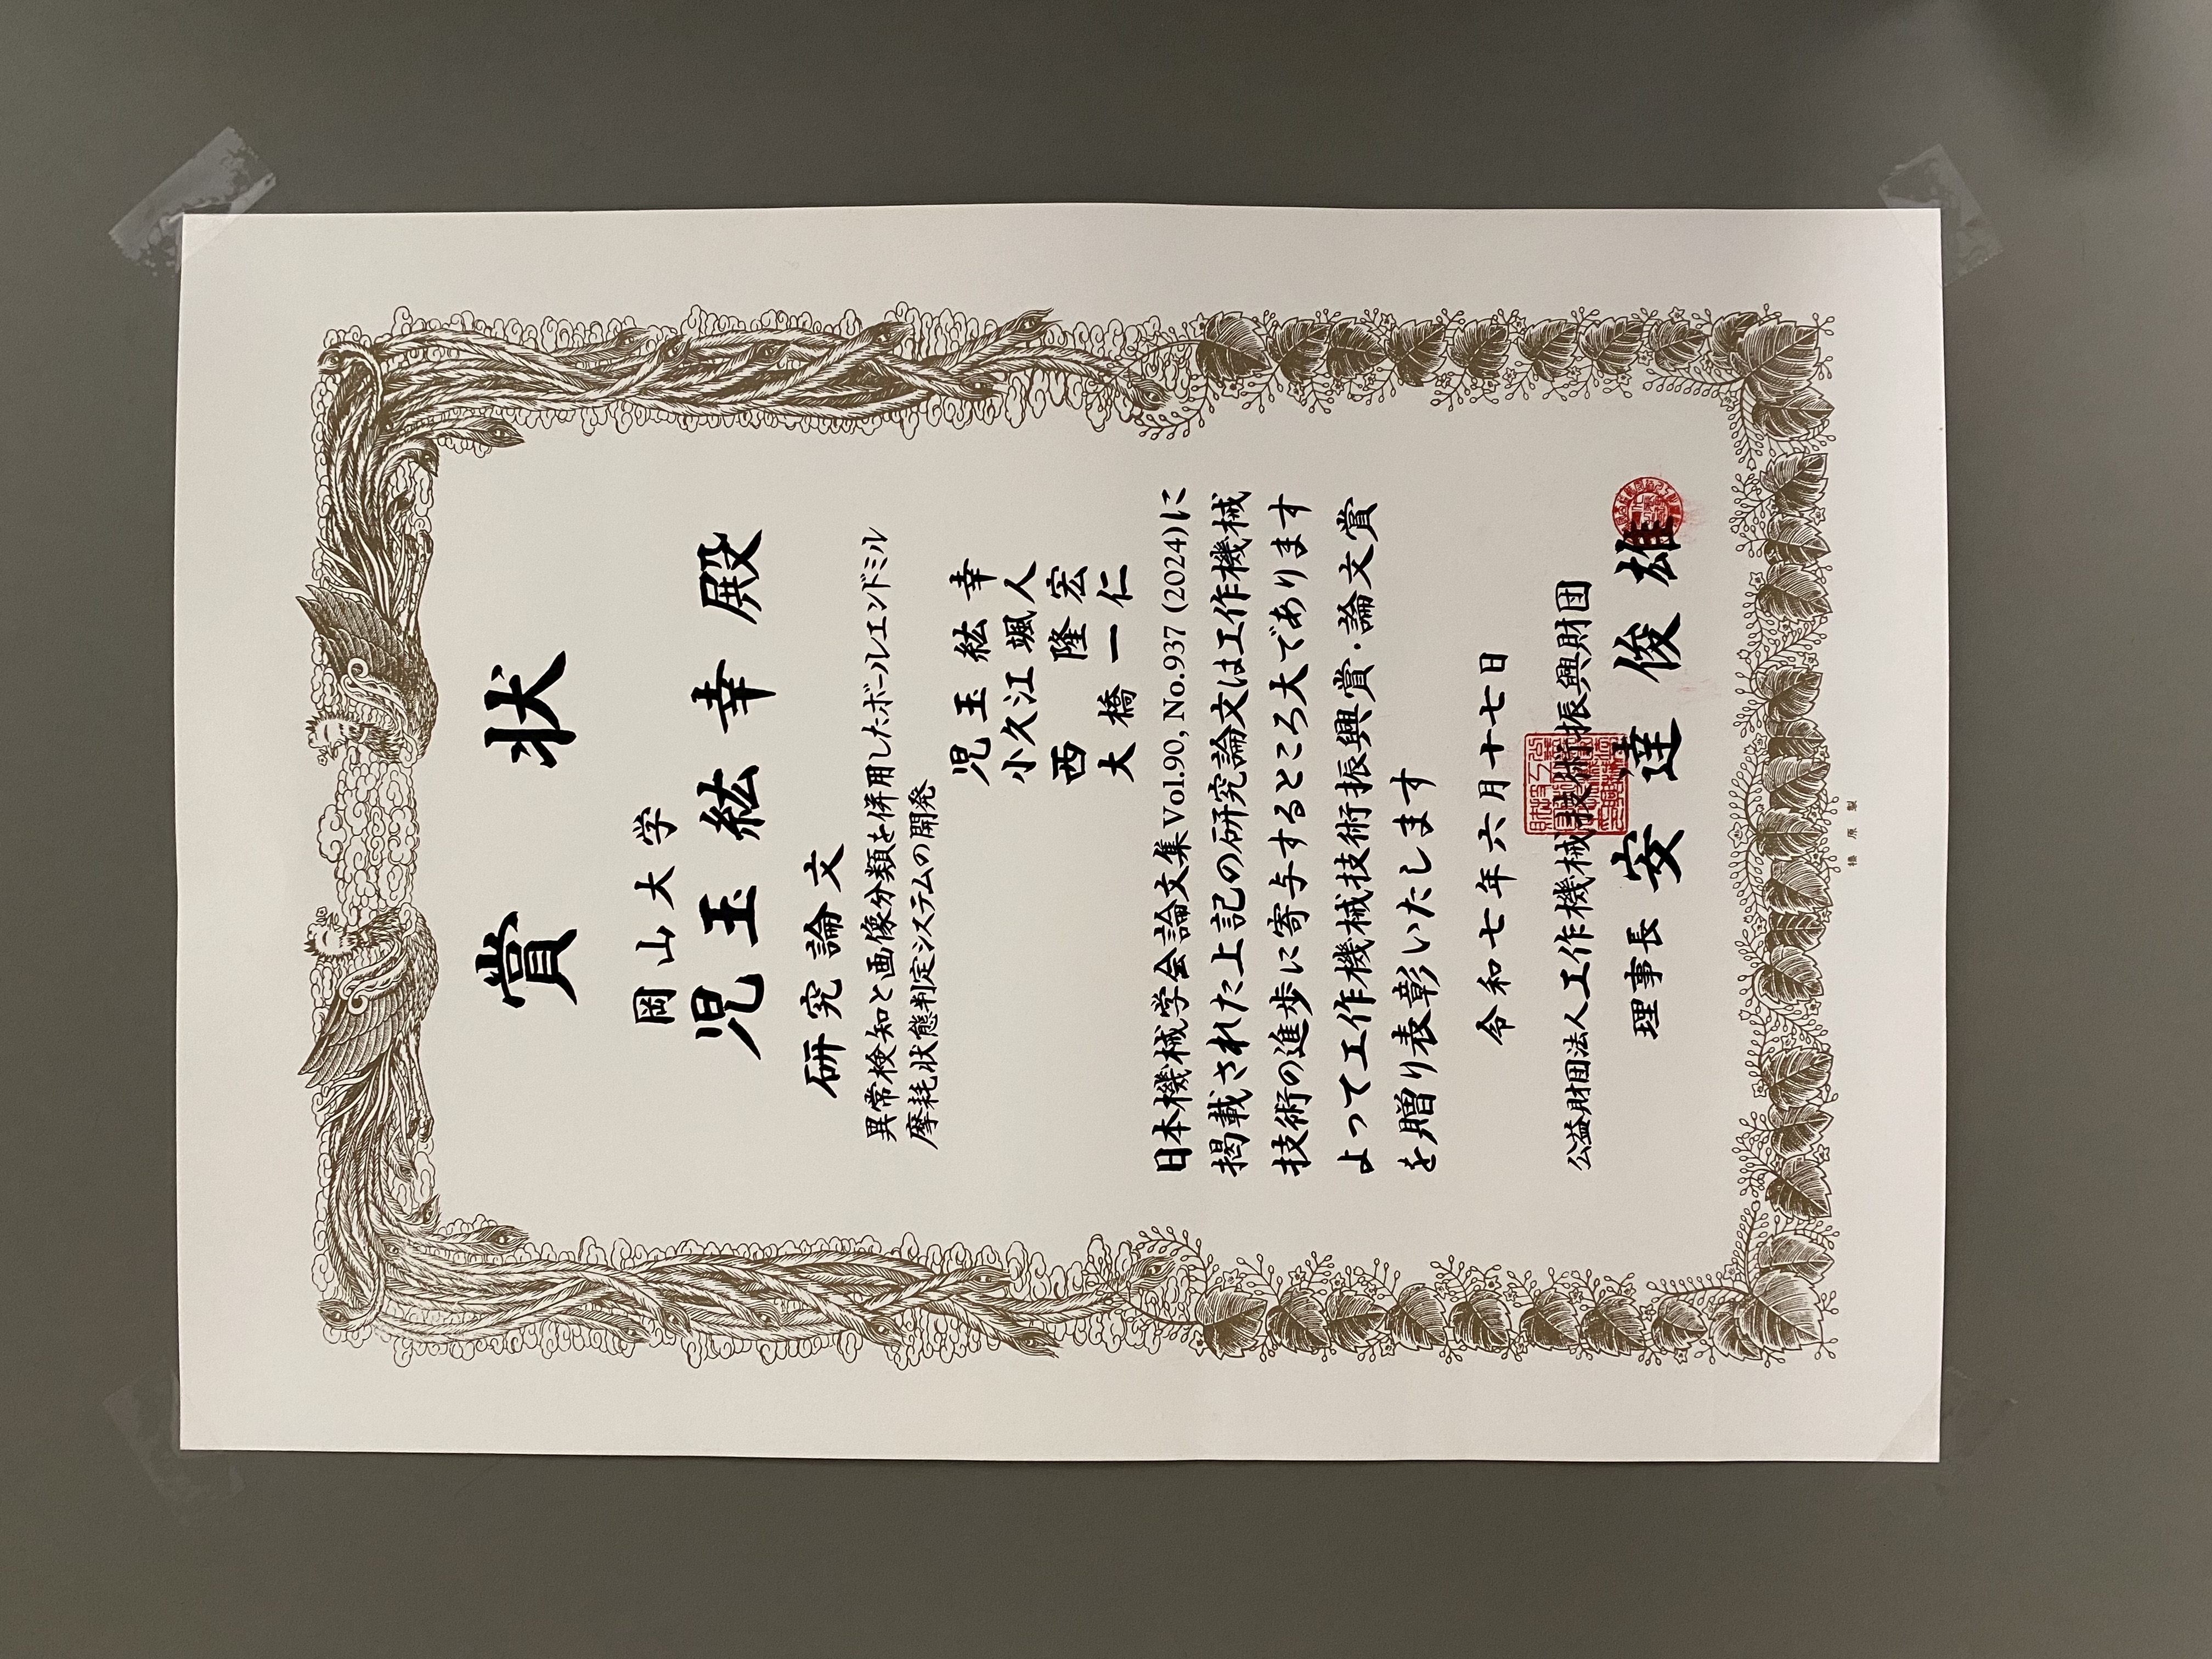 賞状
岡山大学
児玉紘幸殿
研究論文
異常検知と画像分類を併用したボールエンドミル
摩耗状態判定システムの開発
児玉紘幸
小久江颯人
西隆宏
大橋一仁
日本機械学会論文集Vol.90, No.937 (2024)に
掲載された上記の研究論文は工作機械
技術の進歩に寄与するところ大であります
よって工作機械技術振興賞・論文賞
を贈り表彰いたします
令和七年六月十七日
公益財団法人工作機械技術振興財団
理事長 安達俊雄